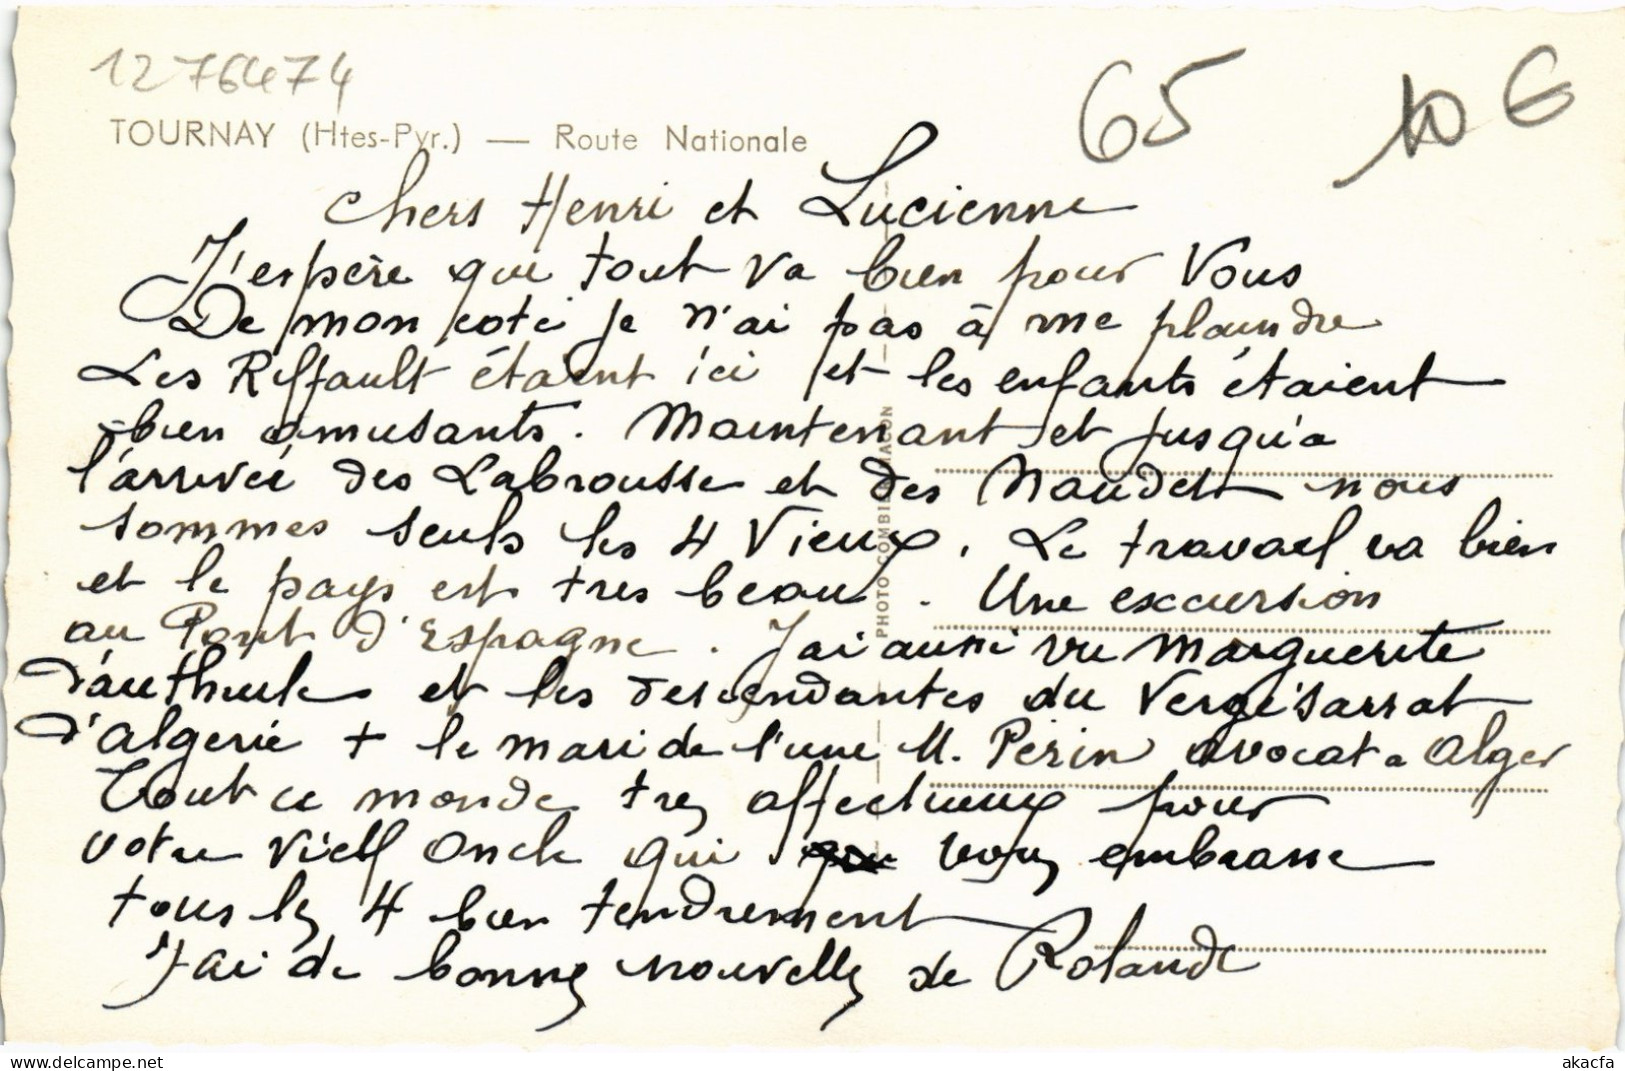 1276474
65
10 €
TOURNAY (Htes-Pyr.) — Route Nationale
Chers Henri et Lucienne
J'espère que tout va bien pour Vous
De mon coté je n'ai pas à me plaindre
Les Riffault étaient ici et les enfants étaient
bien amusants. Maintenant et jusqu'a
l'arrivée des Labrousse et des Naudet nous
sommes seuls les 4 Vieux. Le travail va bien
et le pays est tres beau. Une excursion
au Pont d'Espagne. J'ai aussi vu Marguerite
et les descendantes du
d'Algerie + le mari de l'une M. Perin avocat a Alger
Tout ce monde tres affectueux pour
votre vieil Oncle qui vous embrasse
tous les 4 bien tendrement
J'ai de bonnes nouvelles de Rolande
PHOTO COMBIER MACON
www.delcampe.net
akacfa